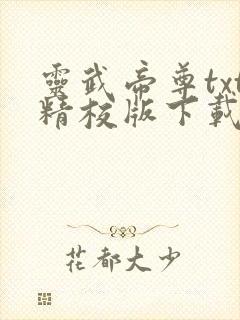 靈武帝尊txt
精校版下載
花都大少